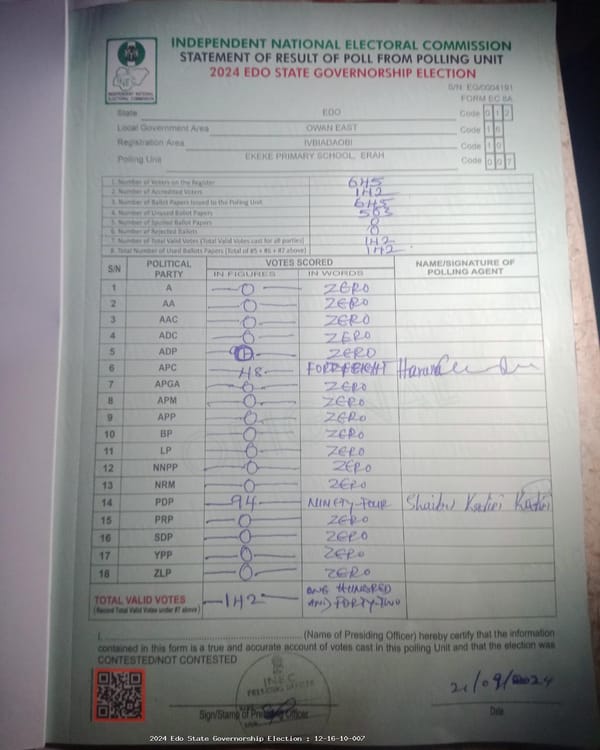 INDEPENDENT NATIONAL ELECTORAL COMMISSION
STATEMENT OF RESULT OF POLL FROM POLLING UNIT
2024 EDO STATE GOVERNORSHIP ELECTION
INDEPENDENT NATIONAL ELECTORAL COMMISSION
FORM EC 8A
State EDO Code 0 1 2
Local Government Area OWAN EAST Code 1 6
Registration Area IVBIADAOBI Code 1 0
Polling Unit EKEKE PRIMARY SCHOOL, ERAH Code 0 0 7
1. Number of Voters on the Register 645
2. Number of Accredited Voters 142
3. Number of Ballot Papers Issued to the Polling Unit 645
4. Number of Unused Ballot Papers 503
5. Number of Spoiled Ballot Papers 0
6. Number of Rejected Ballots 0
7. Number of Total Valid Votes (Total Valid Votes cast for all parties) 142
8. Total Number of Used Ballots Papers (Total of #5 + #6 + #7 above) 142
S/N POLITICAL PARTY VOTES SCORED NAME/SIGNATURE OF POLLING AGENT
IN FIGURES IN WORDS
1 A 0 ZERO
2 AA 0 ZERO
3 AAC 0 ZERO
4 ADC 0 ZERO
5 ADP ZERO
6 APC 48 FORTY EIGHT
7 APGA 0 ZERO
8 APM 0 ZERO
9 APP 0 ZERO
10 BP 0 ZERO
11 LP 0 ZERO
12 NNPP 0 ZERO
13 NRM 0 ZERO
14 PDP 94 NINETY FOUR Shaibu Kadiri Kadiri
15 PRP 0 ZERO
16 SDP 0 ZERO
17 YPP 0 ZERO
18 ZLP 0 ZERO
TOTAL VALID VOTES 142 ONE HUNDRED
(Record Total Valid Votes under #7 above) AND FORTY-TWO
I, (Name of Presiding Officer) hereby certify that the information
contained in this form is a true and accurate account of votes cast in this polling Unit and that the election was
CONTESTED/NOT CONTESTED
INEC
PRESIDING OFFICER
21/09/2024
Sign/Stamp of Presiding Officer Date
2024 Edo State Governorship Election : 12-16-10-007